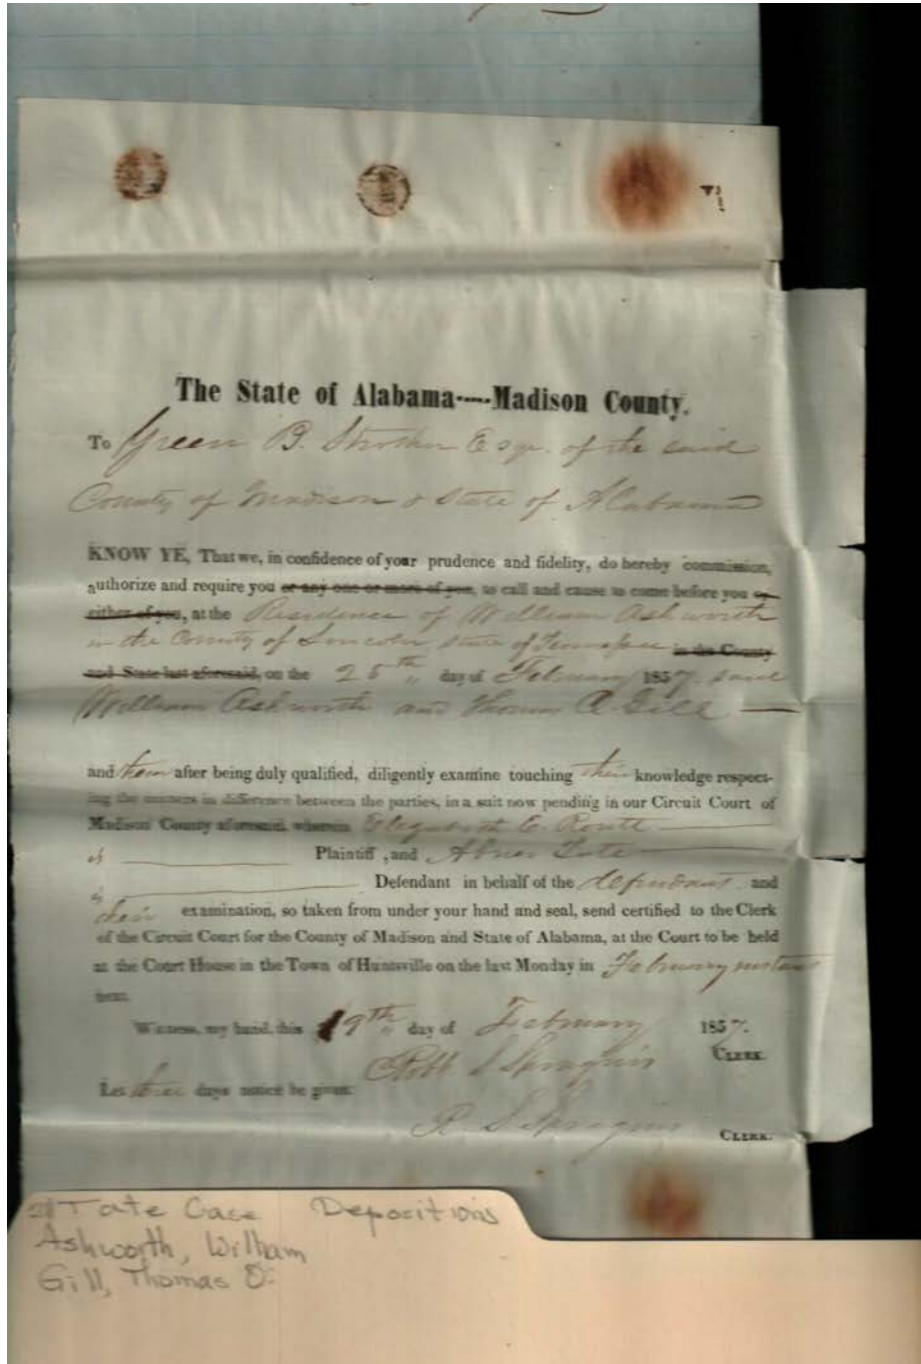 The State of Alabama----Madison County.
To Green B. Strother Esqr. of the said
County of Madison & State of Alabama
KNOW YE, That we, in confidence of your prudence and fidelity, do hereby commission,
authorize and require you or any one or more of you, to call and cause to come before you or
either of you, at the Residence of William Ashworth
in the County of Lincoln State of Tennessee in the County
and State last aforesaid, on the 25th day of February 1857. said
William Ashworth and Thomas A. Gill —
and them after being duly qualified, diligently examine touching their knowledge respect-
ing the matters in difference between the parties, in a suit now pending in our Circuit Court of
Madison County aforesaid, wherein E. Routt
is Plaintiff, and Abner Tate
is Defendant in behalf of the defendant and
their examination, so taken from under your hand and seal, send certified to the Clerk
of the Circuit Court for the County of Madison and State of Alabama, at the Court to be held
at the Court House in the Town of Huntsville on the last Monday in February instant
next.
Witness, my hand, this 19th day of February 1857.
Robt S Spragins CLERK.
Let three days notice be given.
R. S. Spragins CLERK.
Tate Case Depositions
Ashworth, William
Gill, Thomas